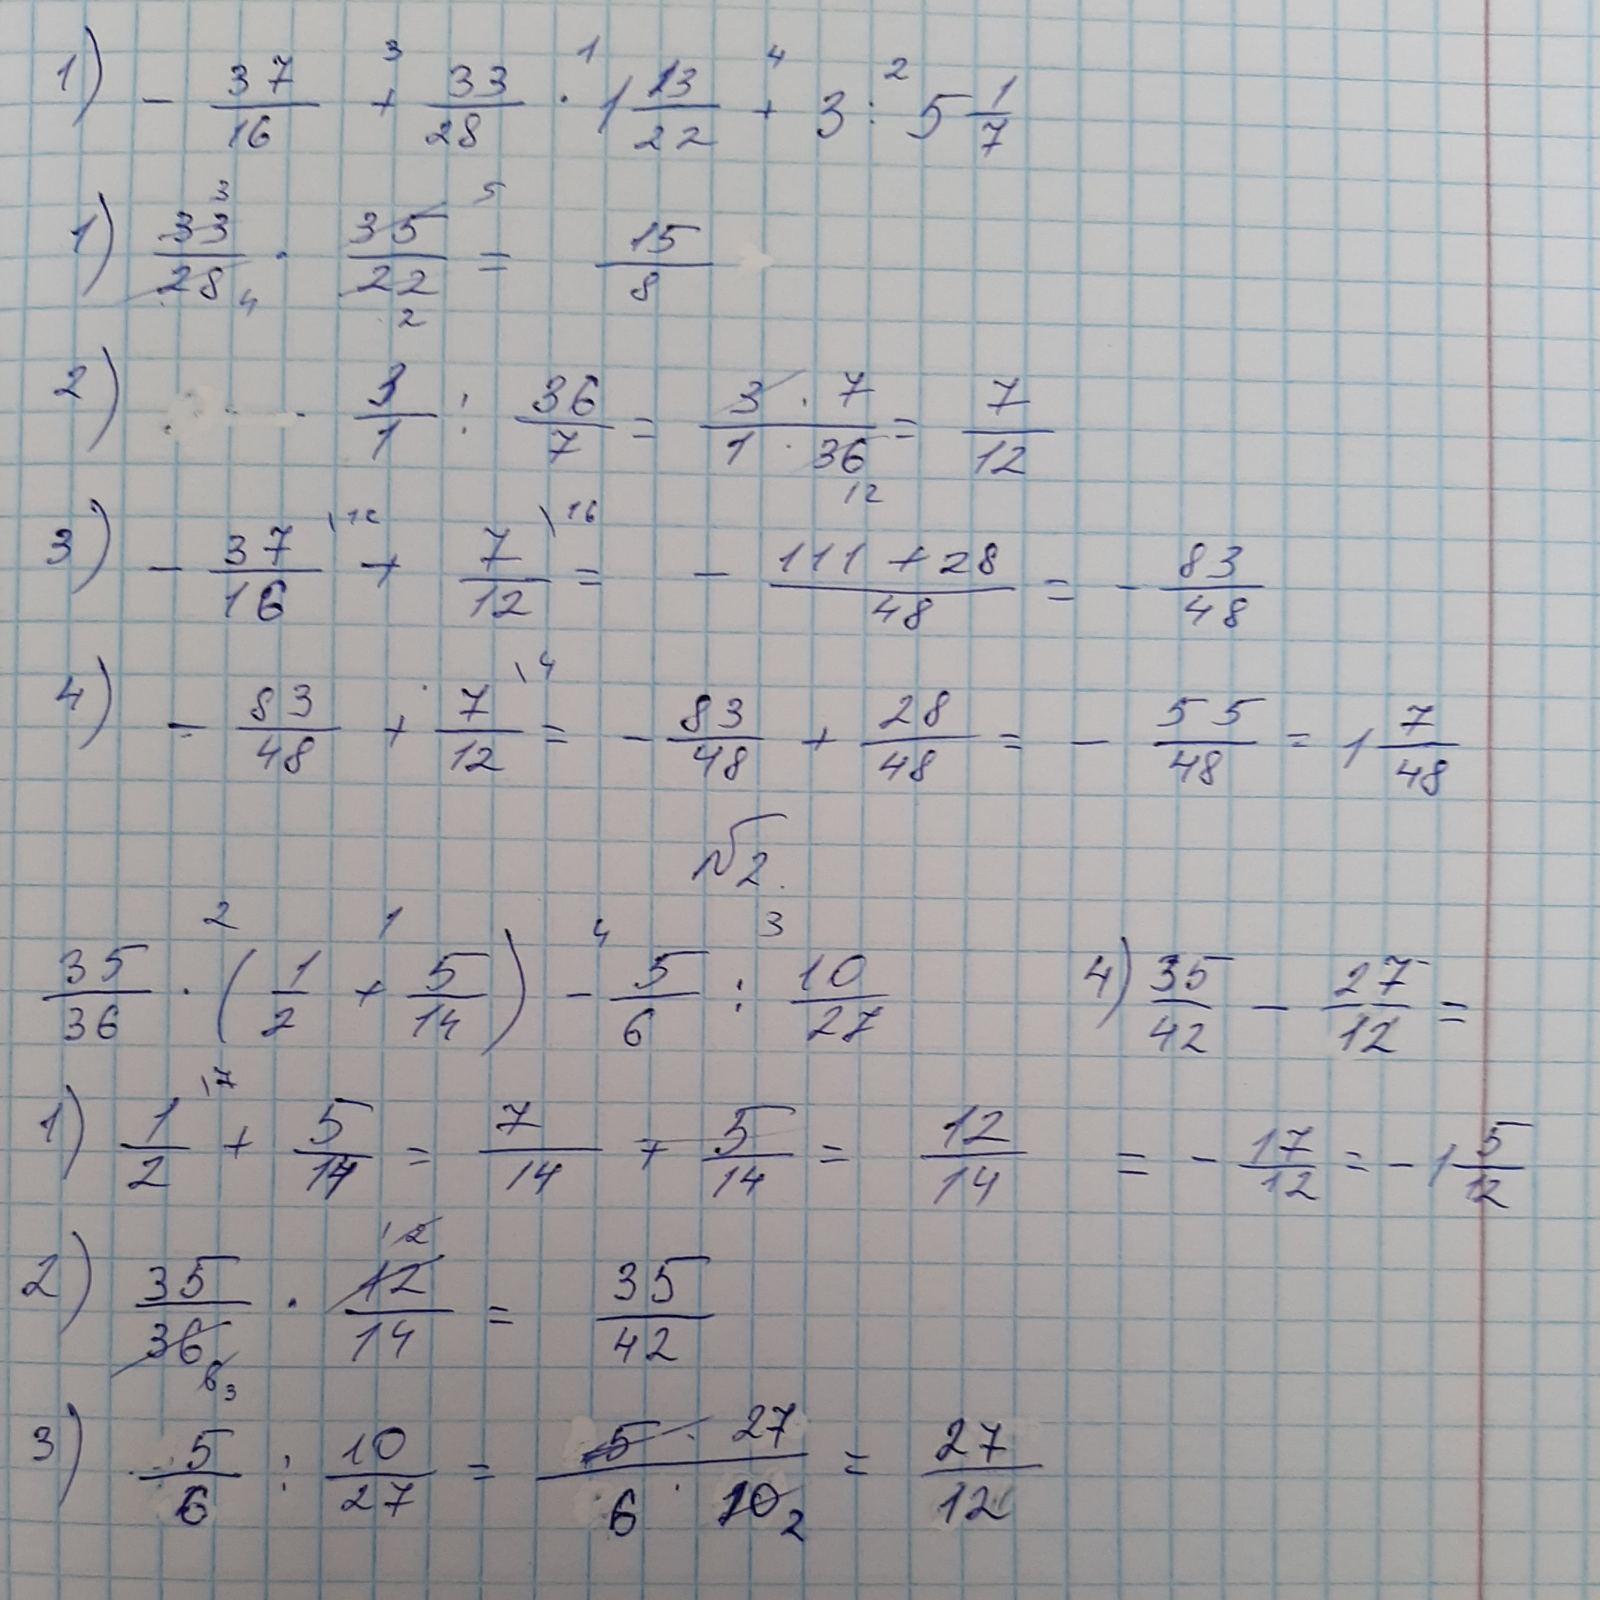 1) - 37/16 + 33/28 · 1 13/22 + 3 : 5 1/7
1) 33/28 · 35/22 = 15/8
2) 3/1 : 36/7 = 3 · 7/1 · 36 = 7/12
3) - 37/16 + 7/12 = - 111 + 28/48 = - 83/48
4) - 83/48 + 7/12 = - 83/48 + 28/48 = - 55/48 = 1 7/48
№2.
35/36 · (1/2 + 5/14) - 5/6 : 10/27
4) 35/42 - 27/12 =
= - 17/12 = - 1 5/12
1) 1/2 + 5/14 = 7/14 + 5/14 = 12/14
2) 35/36 · 12/14 = 35/42
3) 5/6 : 10/27 = 5 · 27/6 · 10 = 27/12